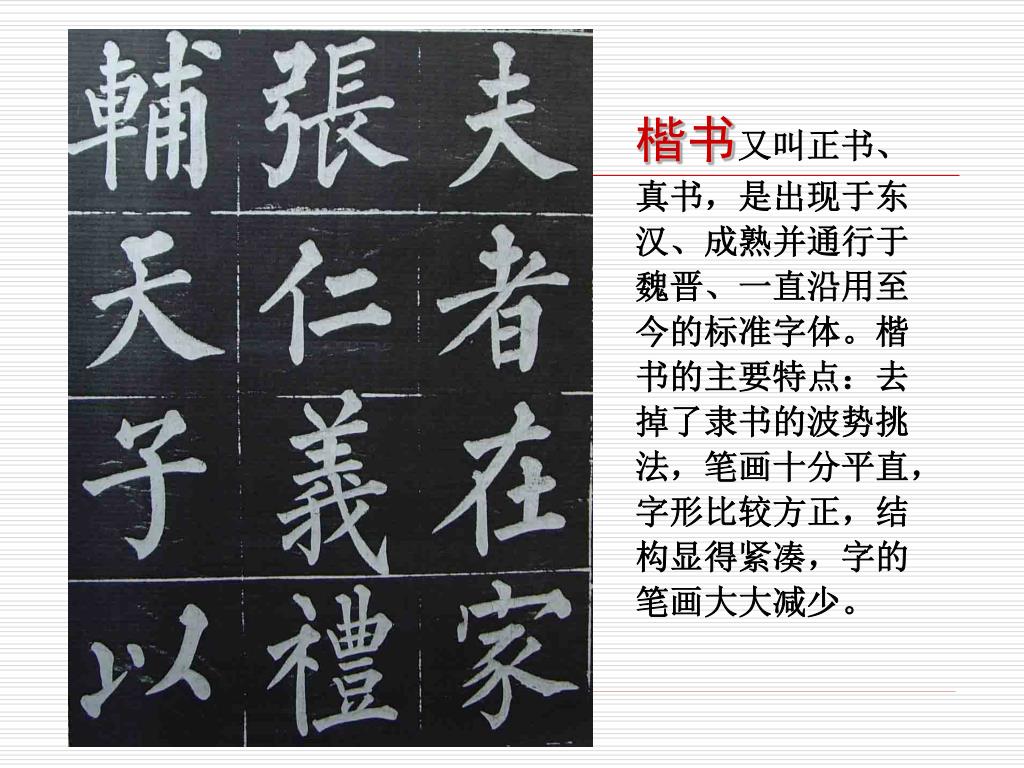 夫者在家
張仁義禮
輔天子以
楷书又叫正书、
真书，是出现于东
汉、成熟并通行于
魏晋、一直沿用至
今的标准字体。楷
书的主要特点：去
掉了隶书的波势挑
法，笔画十分平直，
字形比较方正，结
构显得紧凑，字的
笔画大大减少。